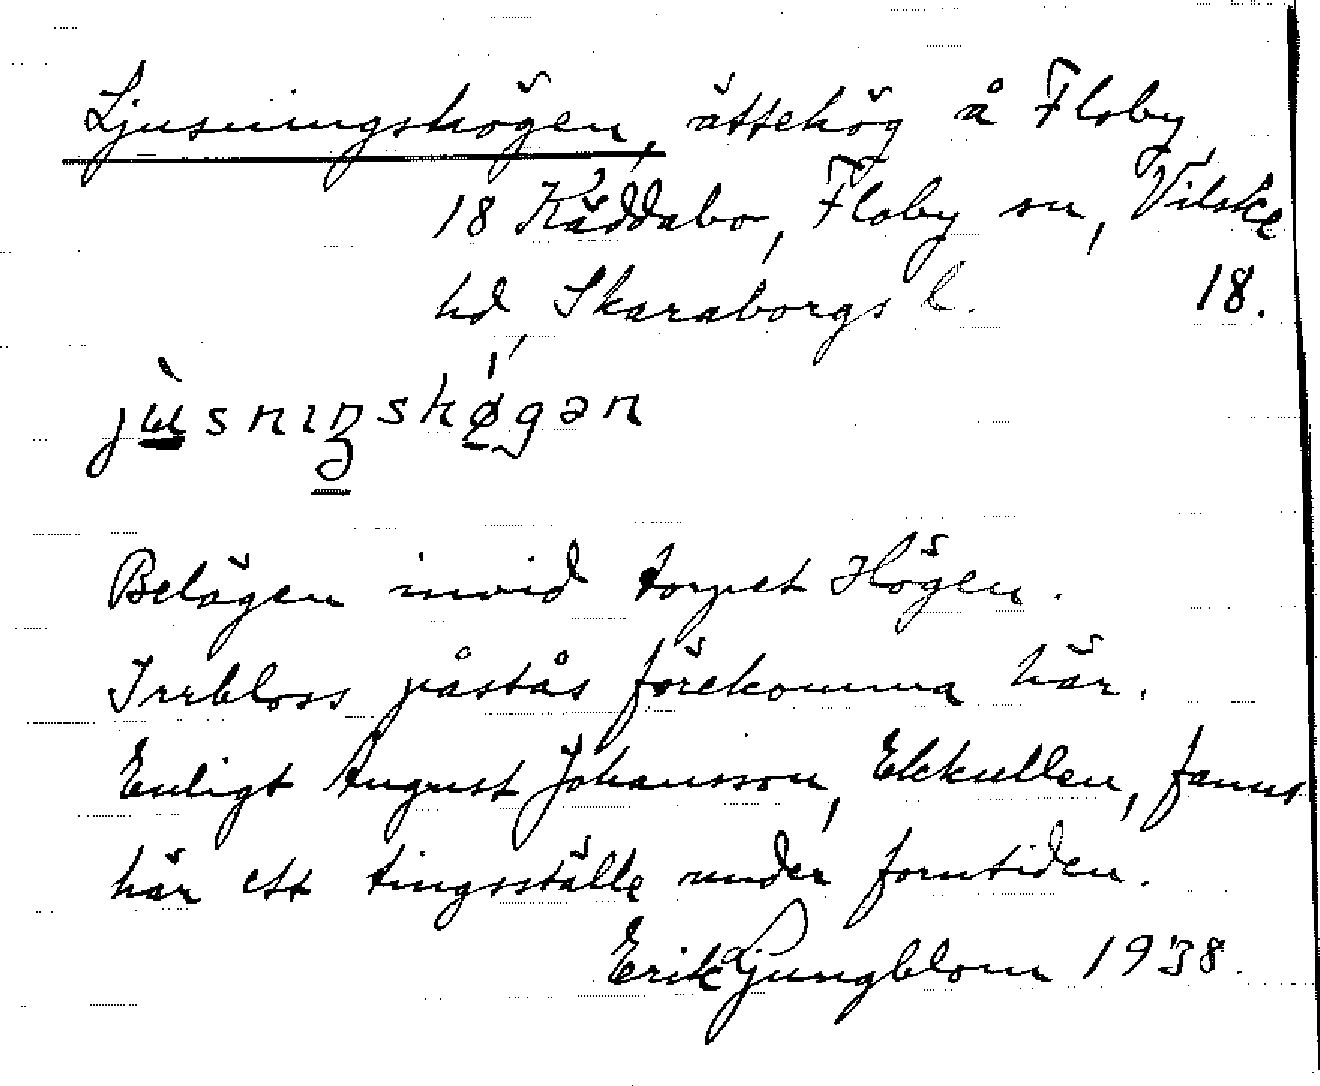 Ljusningshögen, ättehög å Floby
18 Käddabo, Floby sn, Vilske
hd, Skaraborgs l. 18.
jùsnıŋshø̀gən
Belägen invid torpet Högen.
Irrbloss påstås förekomma här.
Enligt August Johansson, Ekkullen, fanns
här ett tingsställe under forntiden.
Erik Ljungblom 1938.